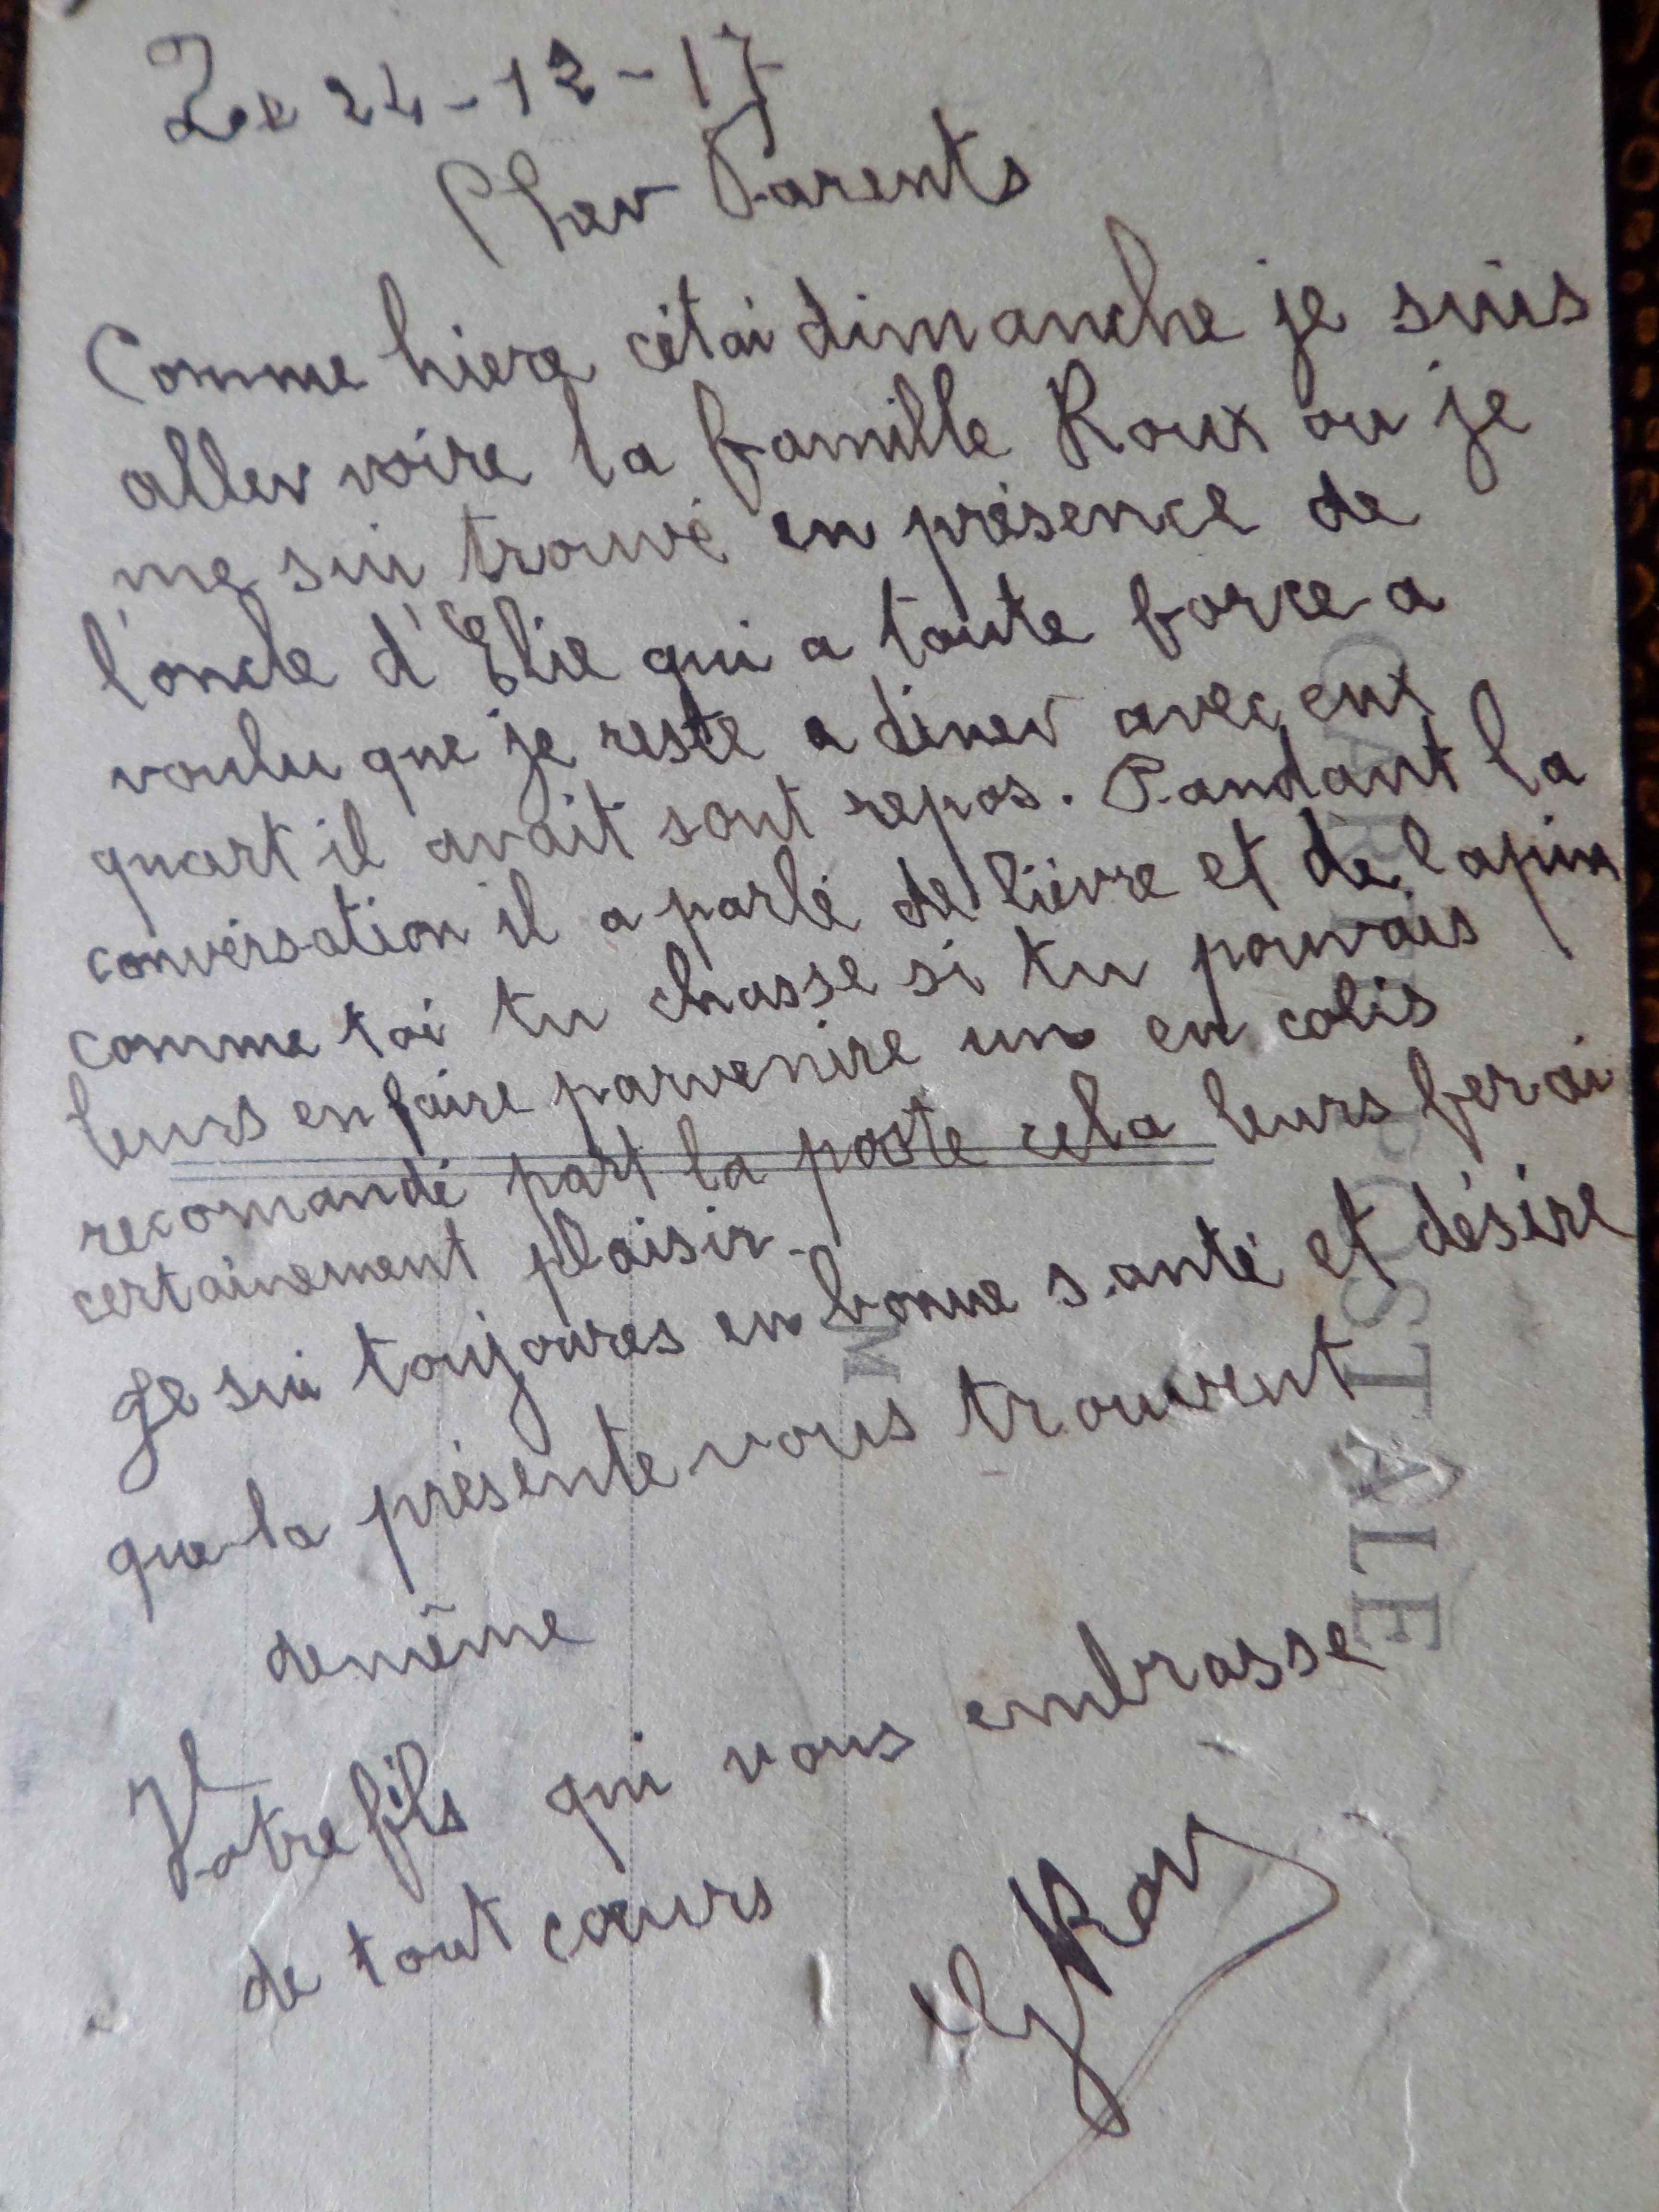 Le 24-12-17
Cher Parents
Comme hiere cétai dimanche je suis
aller voire la famille Roux ou je
me sui trouvé en présence de
l'oncle d'Elie qui a toute force a
voulu que je reste a diner avec eux
quart il avait sont repos. Pandant la
conversation il a parlé de lièvre et de lapin
comme toi tu chasse si tu pouvais
leurs en faire parvenire un en colis
recomandé part la poste cela leurs ferai
certainement plaisir.
Je sui toujoures en bonne santé et désire
que la présente vous trouvent
demême
Votre fils qui vous embrasse
de tout cœurs
CARTE POSTALE
M